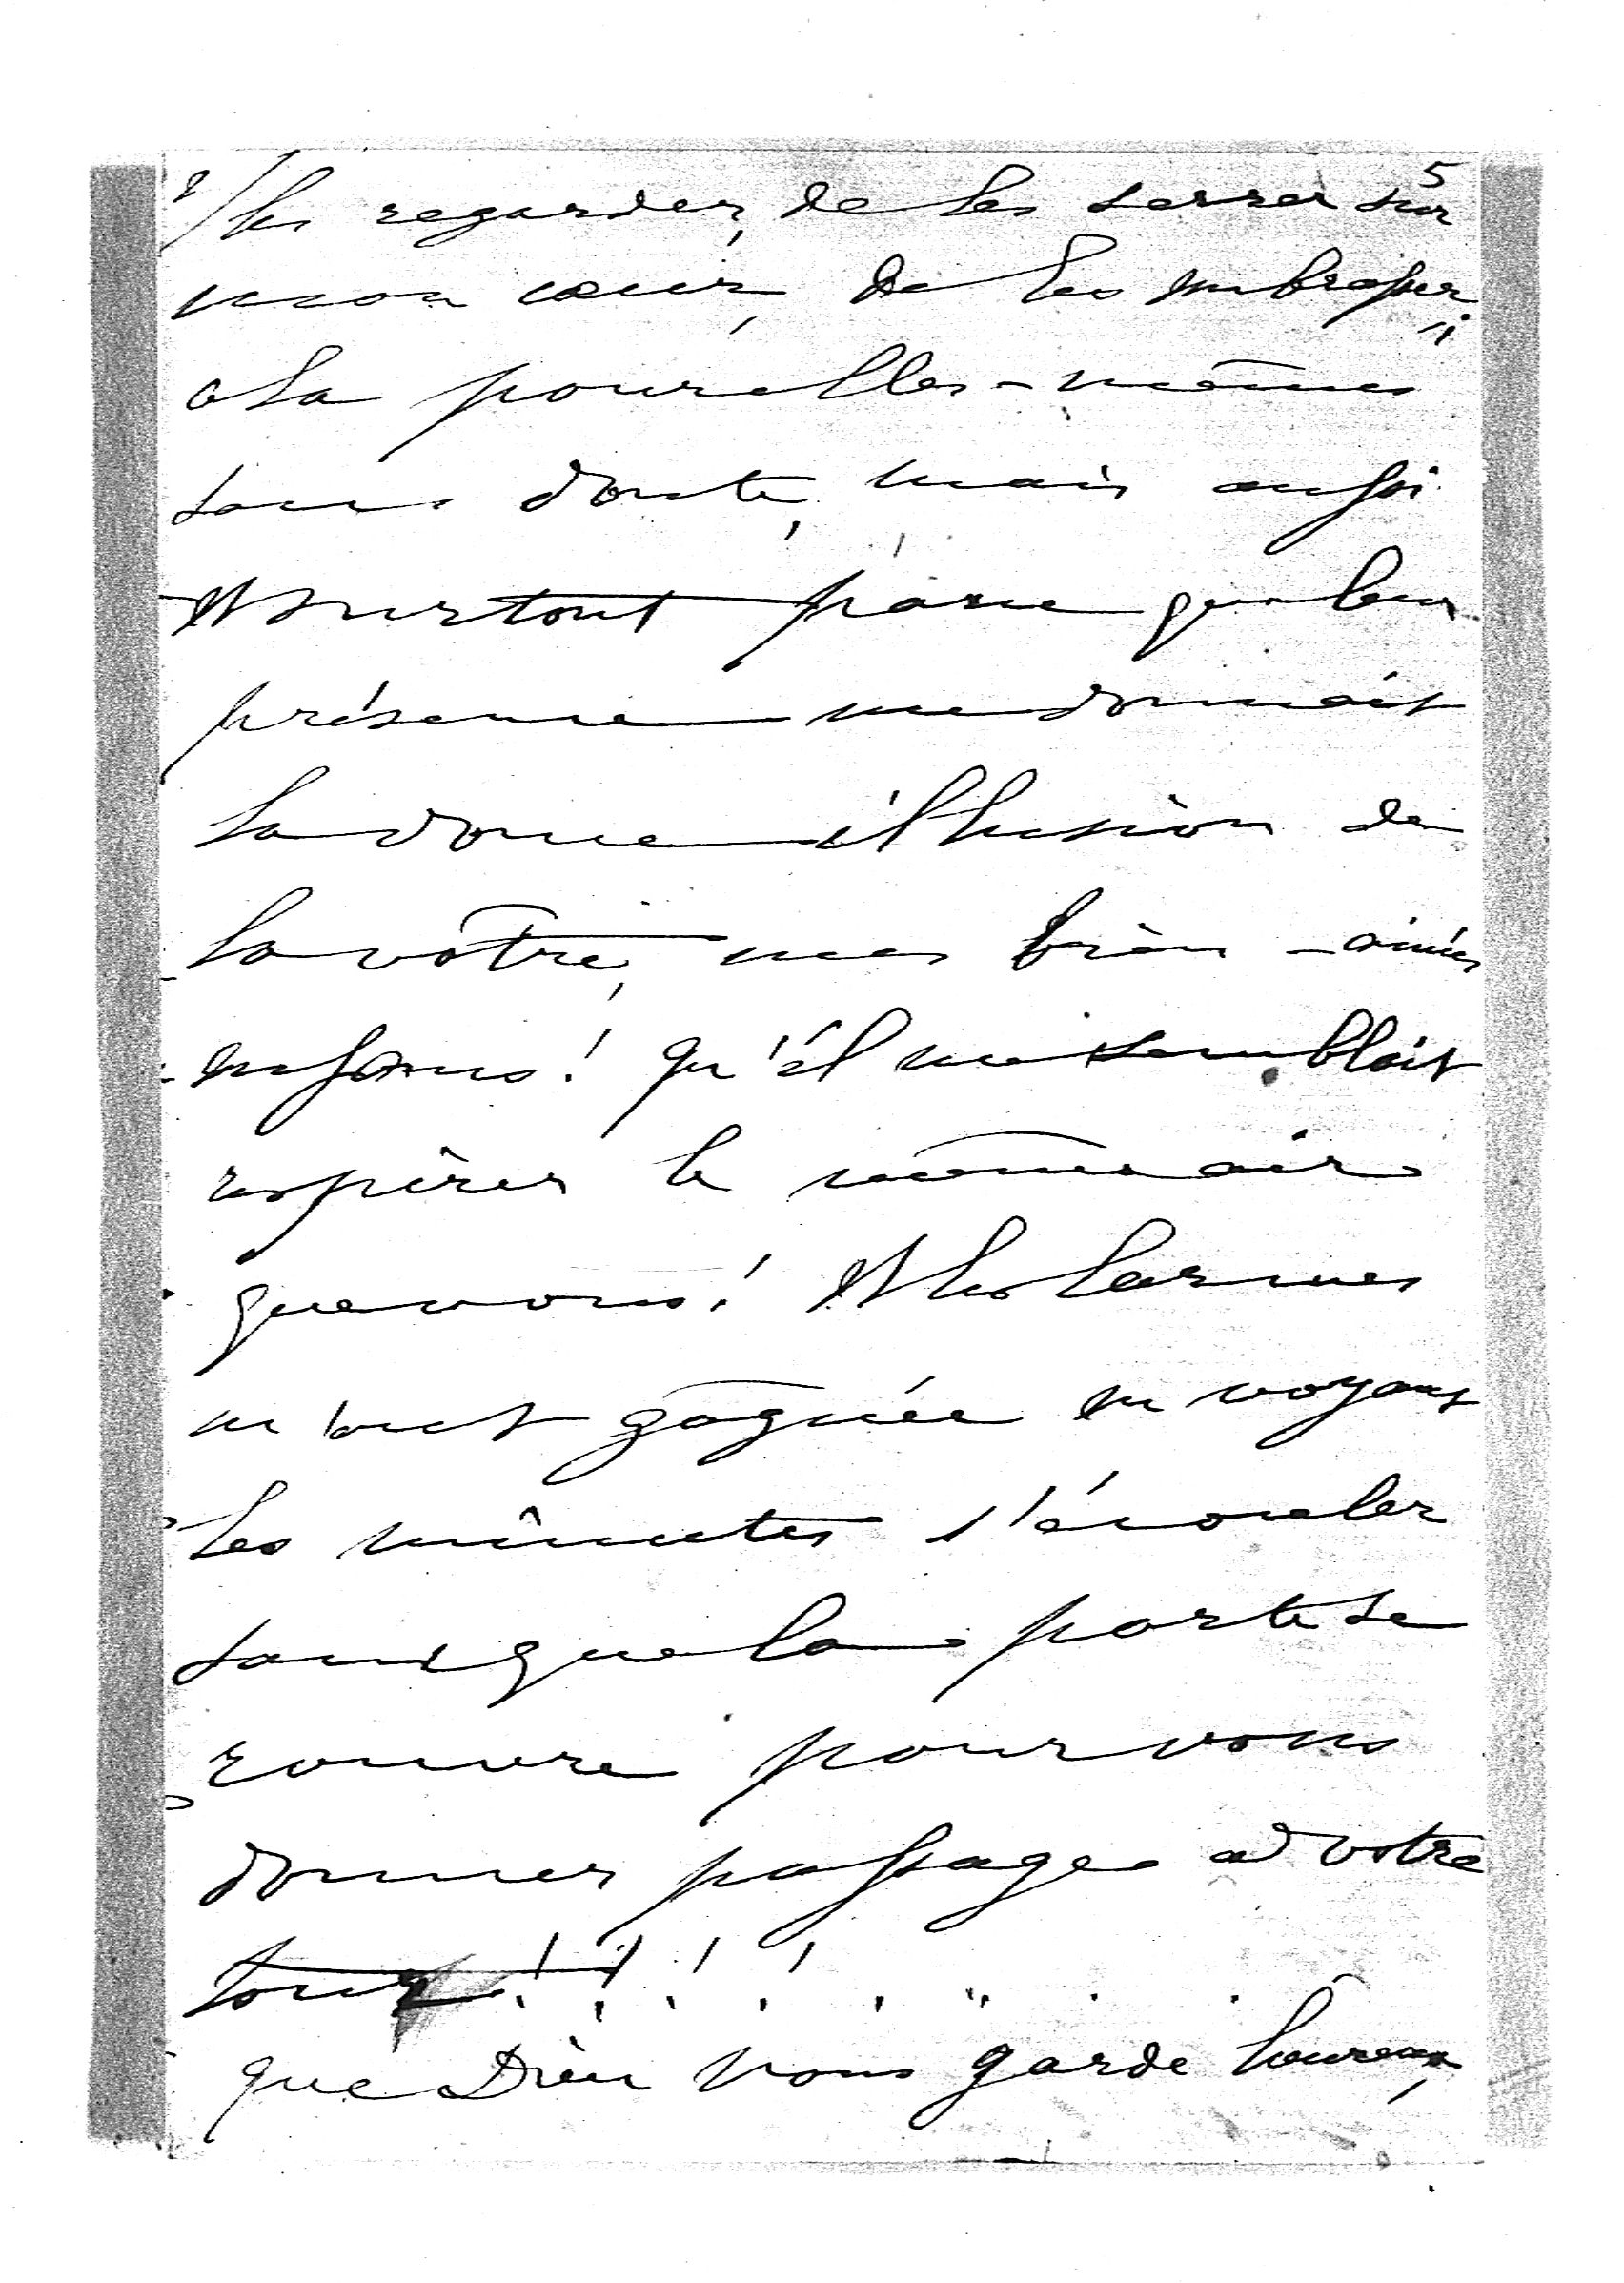 2/ les regarder, de les serrer sur 5
mon cœur, de les embrasser
cela pour elles-mêmes
sans doute, mais aussi
et surtout parce que leur
présence me donnait
la douce illusion de
la vôtre, mes bien-aimés
enfans ! qu'il me semblait
respirer le même air
que vous ! et les larmes
m'ont gagnée en voyant
les minutes s'écouler
sans que la porte se
rouvre pour vous
donner passage à votre
tour ! ! ! ! . . . .
que Dieu vous garde heureux,